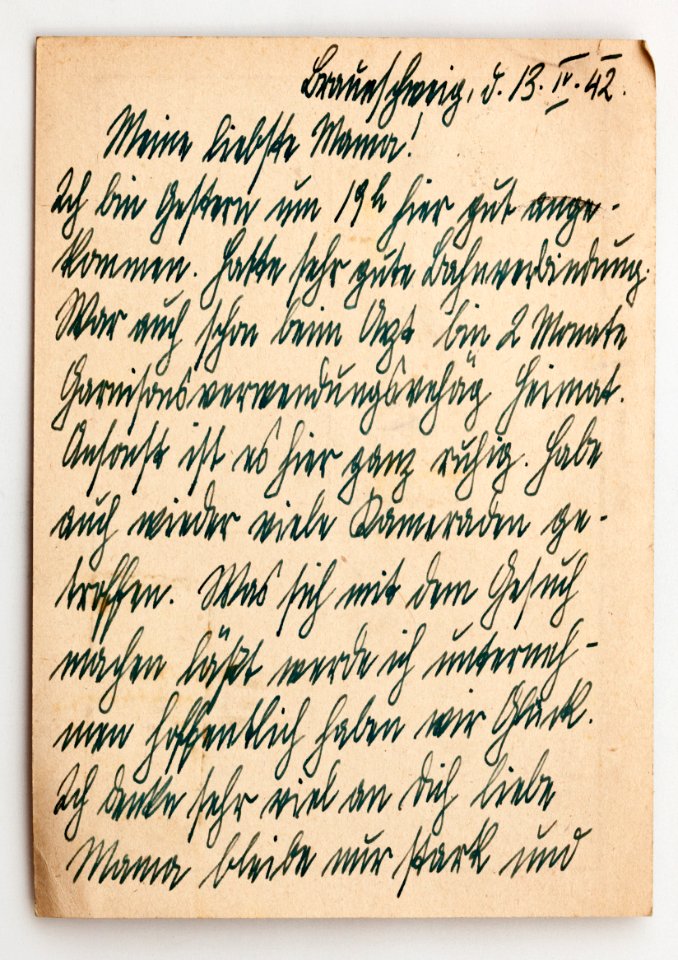 Braunschweig, d. 13. IV. 42.
Meine liebste Mama!
Ich bin Gestern um 19h hier gut ange-
kommen. Hatte sehr gute Bahnverbindung.
War auch schon beim Arzt bin 2 Monate
Garnisonsverwendungsvehäg Heimat.
Ansonst ist es hier ganz ruhig. Habe
auch wieder viele Kameraden ge-
troffen. Was sich mit dem Gesuch
machen läßt werde ich unterneh-
men hoffentlich haben wir Glück.
Ich denke sehr viel an Dich liebe
Mama bleibe nur stark und